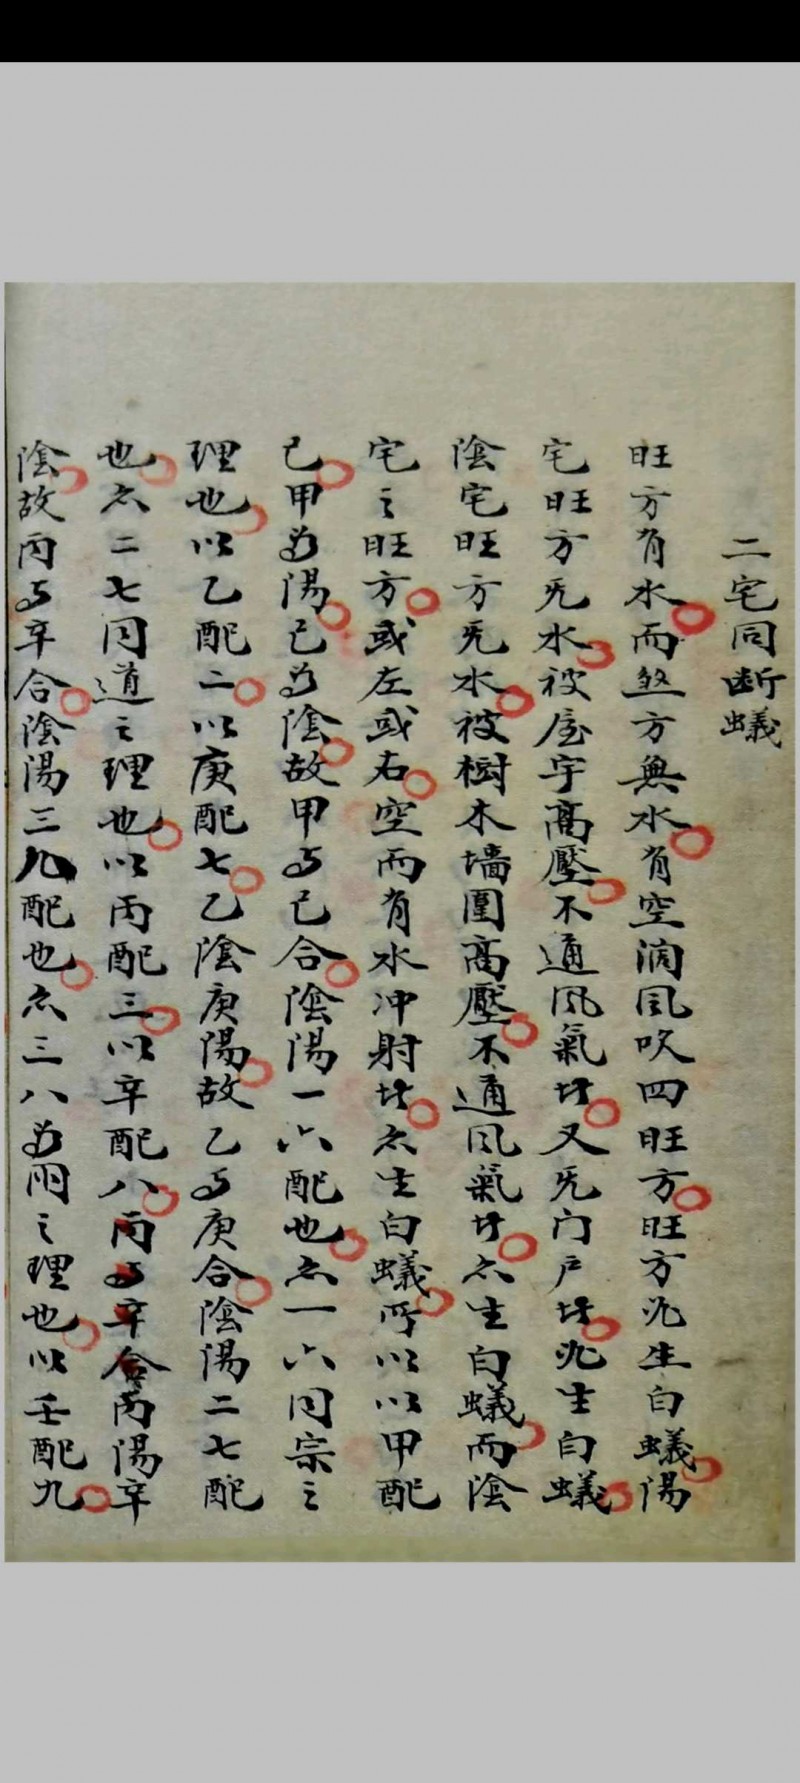 二宅同断蟻
旺方有水而煞方無水有空洞風吹四旺方旺方必生白蟻陽
宅旺方旡水被屋宇高壓不通風氣者又旡门户者必生白蟻
陰宅旺方旡水被樹木墙圍高壓不通風氣者亦生白蟻而陰
宅之旺方或左或右空而有水冲射者亦生白蟻所以以甲配
己甲為陽己為陰故甲与己合陰陽一六配也亦一六同宗之
理也以乙配二以庚配七乙陰庚陽故乙与庚合陰陽二七配
也亦二七同道之理也以丙配三以辛配八丙与辛合丙陽辛
陰故丙与辛合陰陽三八配也亦三八為朋之理也以壬配九